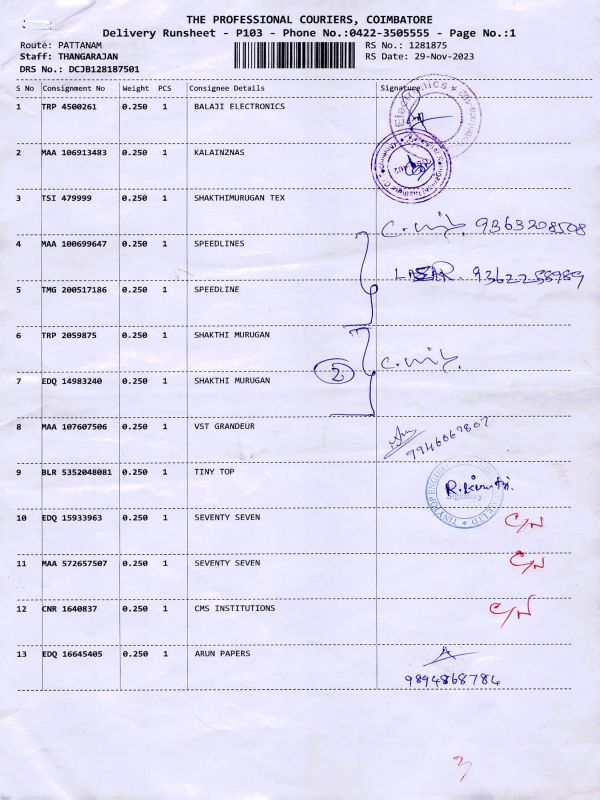 THE PROFESSIONAL COURIERS, COIMBATORE
Delivery Runsheet - P103 - Phone No.:0422-3505555 - Page No.:1
Route: PATTANAM RS No.: 1281875
Staff: THANGARAJAN RS Date: 29-Nov-2023
DRS No.: DCJB128187501
S No Consignment No Weight PCS Consignee Details Signature
1 TRP 4500261 0.250 1 BALAJI ELECTRONICS
2 MAA 106913483 0.250 1 KALAINZNAS
3 TSI 479999 0.250 1 SHAKTHIMURUGAN TEX
9363208508
4 MAA 100699647 0.250 1 SPEEDLINES
9362258989
5 TMG 200517186 0.250 1 SPEEDLINE
6 TRP 2059875 0.250 1 SHAKTHI MURUGAN
2
7 EDQ 14983240 0.250 1 SHAKTHI MURUGAN
8 MAA 107607506 0.250 1 VST GRANDEUR
9 BLR 5352048081 0.250 1 TINY TOP
Signatory
10 EDQ 15933963 0.250 1 SEVENTY SEVEN C/N
11 MAA 572657507 0.250 1 SEVENTY SEVEN C/N
12 CNR 1640837 0.250 1 CMS INSTITUTIONS C/N
13 EDQ 16645405 0.250 1 ARUN PAPERS
9894868784